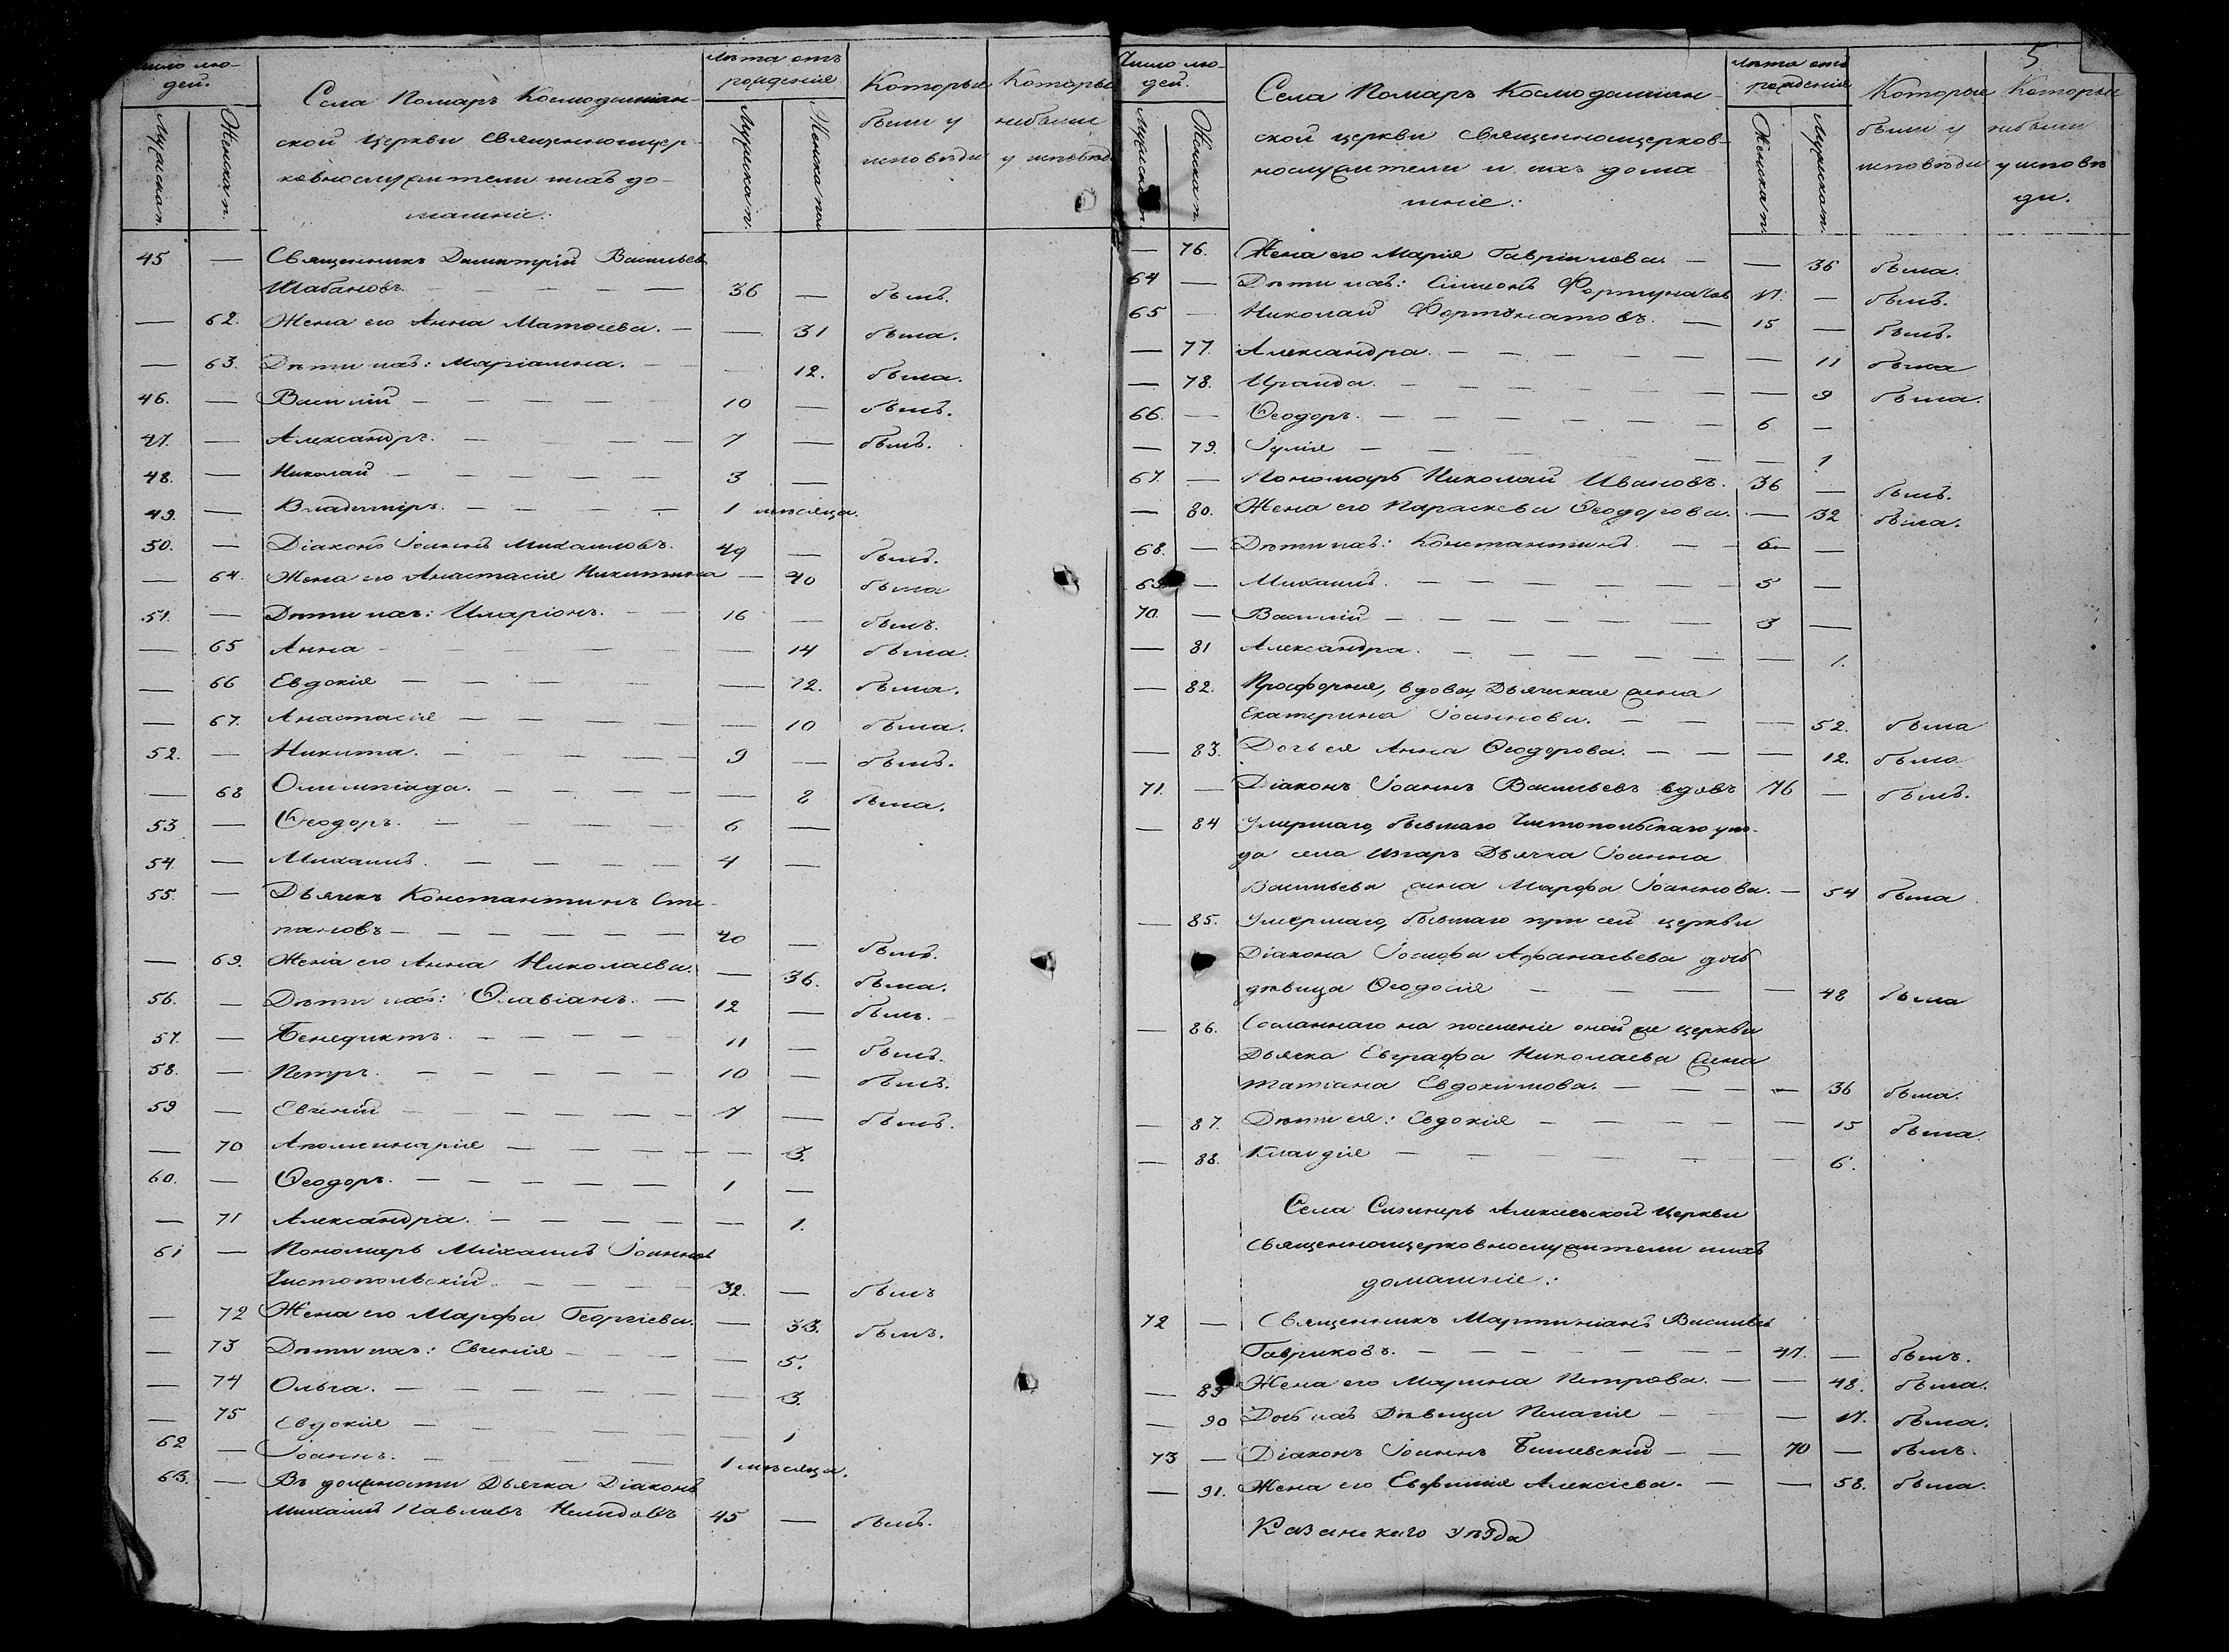 Число лю-
дей.
Мужска п.
Женска п.
Села Помаръ Космодаміан-
ской церкви священноицер-
ковнослужители и ихъ до-
машніе:
Лѣта отъ
рожденія
Мужска п.
Женска пол
Которые
были у
исповѣди
Которые
небыли
у исповѣд
45 — Священникъ Димитрій Васильев
Шабановъ. — 36 — былъ.
— 62. Жена его Анна Матѳеева. — — 31 была.
— 63. Дѣти ихъ: Маріамна. — — 12. была.
46. — Василій — 10 — былъ.
47. — Александръ. — 7 — былъ.
48. — Николай — 3 —
49. — Владиміръ. — 1 мѣсяца.
50. — Діаконъ Іоаннъ Михаиловъ. 49 — былъ.
— 64. Жена его Анастасія Никитина — 40 была
51. — Дѣти ихъ: Иларіонъ. — 16 — былъ.
— 65 Анна — — 14 была.
— 66 Евдокія — — 12. была.
— 67. Анастасія — — 10 была.
52. — Никита. — 9 — былъ.
— 68 Олимпіада. — — 8 была.
53 — Ѳеодоръ. — 6 —
54. — Михаилъ. — 4 —
55. — Дьячекъ Константинъ Сте-
пановъ — 40 — былъ.
— 69. Жена его Анна Николаева. — 36. была.
56. — Дѣти ихъ: Флавіанъ. — 12 — былъ.
57. — Бенедиктъ. — 11 — былъ.
58. — Петръ. — 10 — былъ.
59 — Евгеній — 7 — былъ.
— 70 Аполинарія — — 3.
60. — Ѳеодоръ. — 1 —
— 71 Александра. — — 1.
61 — Пономарь Михаилъ Іоаннов
Чистопольскій. — 32. — былъ
— 72 Жена его Марфа Георгіева. — 33. былъ.
— 73 Дѣти ихъ: Евгенія — — 5.
— 74 Ольга. — — 3.
— 75 Евдокія — — 1
62 — Іоаннъ. — 1 мѣсяца.
63. — Въ должности Дьячка Діаконъ
Михаилъ Павловъ 45 — былъ.
5
Число лю-
дей.
Мужска п.
Женска п.
Села Помаръ Космодаміан-
ской церкви священноицерков-
нослужители и ихъ дома
шніе:
Лѣта отъ
рожденія
Женска п.
Мужска п.
Которые
были у
исповѣди
Которые
небыли
у исповѣ
ди.
— 76. Жена его Марія Гавріилова. — — 36 была.
64 — Дѣти ихъ: Симеонъ Фортунатов 17. — былъ.
65 — Николай Фортунатовъ. — 15 — былъ.
— 77. Александра. — — 11 была
— 78. Ираида. — — 9 была.
66. — Ѳеодоръ. — 6 —
— 79. Іулія — — 1
67. — Пономарь Николай Ивановъ. 36 — былъ.
— 80. Жена его Параскева Ѳеодорова. — 32 была.
68. — Дѣти ихъ: Константинъ. — 6 —
69 — Михаилъ. — 5 —
70. — Василій — 3 —
— 81 Александра. — — 1.
— 82. Просфорня, вдова, Дьяческая жена
Екатерина Іоаннова. — — 52. была
— 83. Дочь ея Анна Ѳеодорова. — — 12. была
71. — Діаконъ Іоаннъ Васильевъ вдовъ 76 — былъ.
— 84 Умершаго, бывшаго Чистопольскаго уѣз-
да села Изгаръ Дьячка Іоанна
Васильева жена Марфа Іоаннова. — 54 была
— 85. Умершаго, бывшаго при сей церкви
Діакона Іосифа Афанасьева дочь
дѣвица Ѳеодосія — — 48 была
— 86. Сосланнаго на поселеніе оной же церкви
Дьячка Евграфа Николаева жена
Татіана Евдокимова. — — 36 была.
— 87. Дѣти ея: Евдокія — — 15 была.
— 88. Клавдія — — 6.
Села Сизинеръ Алексѣевской церкви
священноицерковнослужители и ихъ
домашніе:
72 — Священникъ Мартиніанъ Васильев
Гавриковъ. — 47. — былъ.
— 89 Жена его Марина Петрова. — — 48. была.
— 90 Дочь ихъ Дѣвица Пелагія — — 17. была.
73 — Діаконъ Іоаннъ Бишевскій — 70 — былъ.
— 91. Жена его Евфимія Алексіева. — — 58. была.
Казанскаго уѣзда